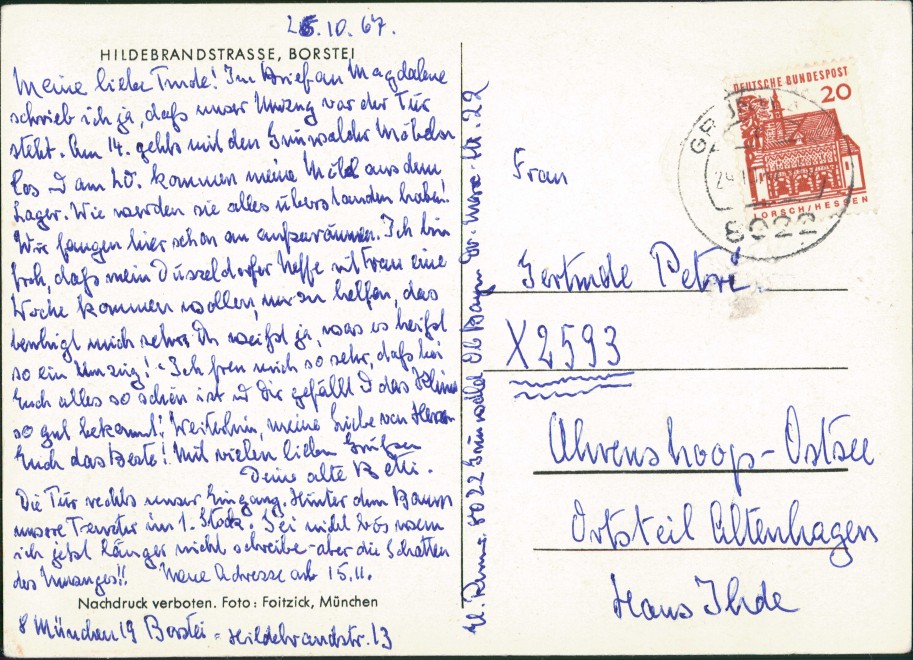 25.10.67.
HILDEBRANDSTRASSE, BORSTEI
Meine liebe Trude! Im Brief an Magdalene
schrieb ich ja, daß unser Umzug vor der Tür
steht. Am 14. gehts mit den Grünwalder Möbeln
los u am 20. kommen meine Möbel aus dem
Lager. Wie werden sie alles überstanden haben!
Wir fangen hier schon an aufzuräumen. Ich bin
froh, daß mein Düsseldorfer Neffe mit Frau eine
Woche kommen wollen, um zu helfen, das
beruhigt mich sehr. Du weißt ja, was es heißt
so ein Umzug! - Ich freu mich so sehr, daß bei
Euch alles so schön ist u dir gefällt u das Klima
so gut bekommt! Weiterhin, meine Liebe von Herzen
Euch das Beste! Mit vielen lieben Grüßen
Deine alte Betti.
Die Tür rechts unser Eingang. Hinter dem Baum
unsere Fenster im 1. Stock. Sei nicht bös wenn
ich jetzt länger nicht schreibe - aber die Schatten
des Umzuges!! Neue Adresse ab 15.11.
Nachdruck verboten. Foto: Foitzick, München
8 München 19 Borstei - Hildebrandstr. 13
8022 Grünwald Ob Bayern Dr. Max-Str. 22
DEUTSCHE BUNDESPOST
20
LORSCH/HESSEN
8022
Frau
Gertrude Petri
X2593
Ahrenshoop-Ostsee
Ortsteil Altenhagen
Haus Ihde